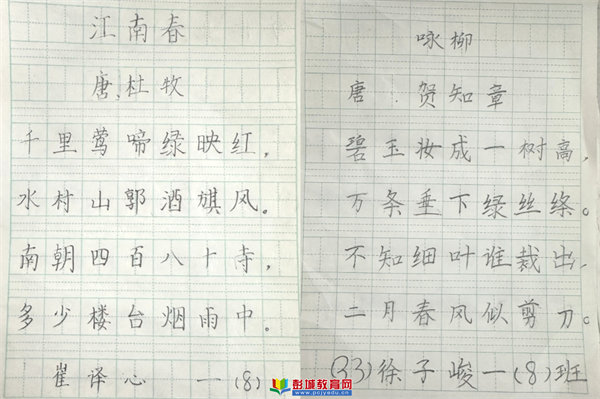 江南春
唐.杜牧
千里莺啼绿映红,
水村山郭酒旗风。
南朝四百八十寺,
多少楼台烟雨中。
崔译心 一(8)
咏柳
唐.贺知章
碧玉妆成一树高,
万条垂下绿丝绦。
不知细叶谁裁出,
二月春风似剪刀。
(33)徐子峻一(8)班
彭城教育网
www.pcjyedu.cn